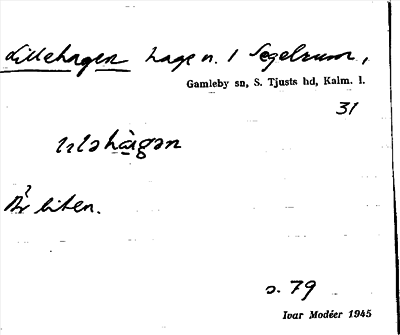 Lillehagen hage n. / Segelrum,
Gamleby sn, S. Tjusts hd, Kalm. l.
31
Är liten.
s. 79
Ivar Modéer 1945